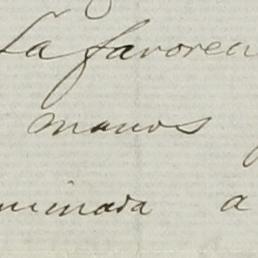 La favorec
manos
minada a